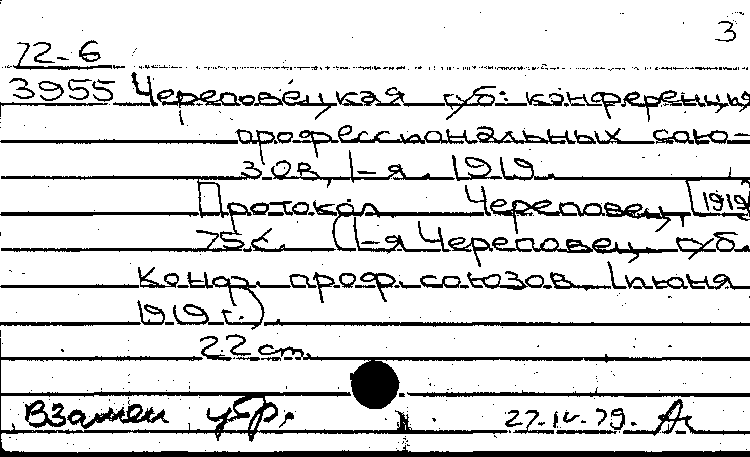 3
72-6
3955 Череповецкая губ. конференция
профессиональных сою-
зов, 1-я. 1919.
Протокол Череповец, [1919]
75 с. (1-я Череповец. губ.
Конф. проф. союзов 1 июня
1919 г.).
22 см.
Взамен утр. 27.IV.79.